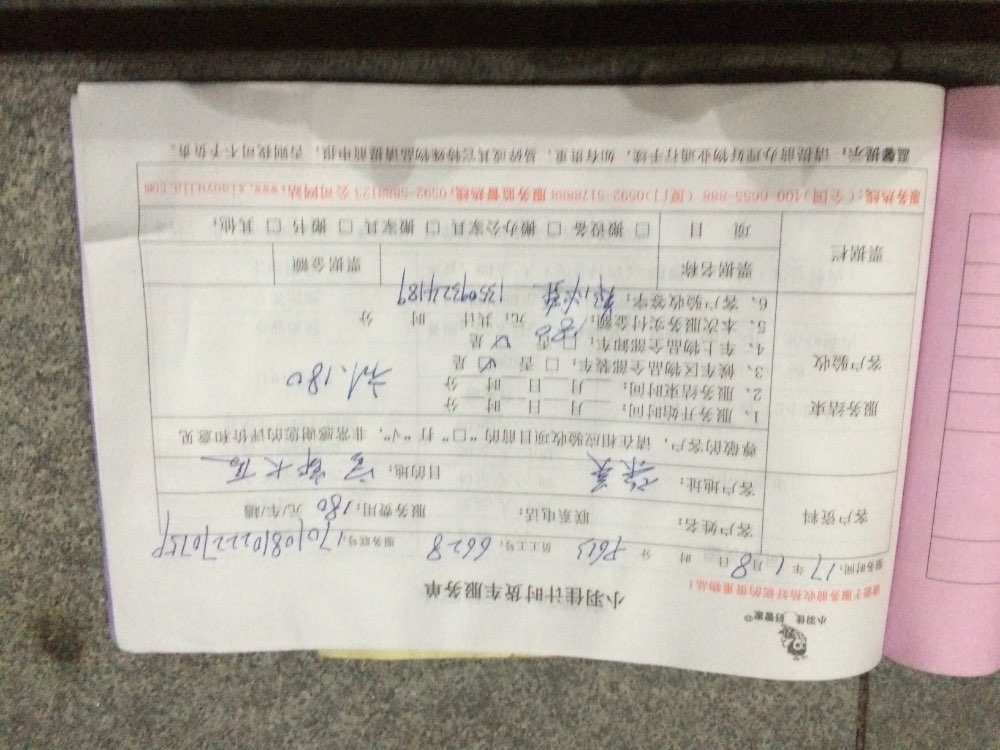 小羽佳 好管家
请您于服务前收拾好您的贵重物品!
小羽佳计时货车服务单
服务时间:17年1月8日 时 分 员工工号:6628 服务账号:
客户资料
客户姓名: 联系电话: 服务费用:180元/车/趟
客户地址: 目的地:
服务结束
客户验收
尊敬的客户,请在相应验收项目前的“□”打“√”,非常感谢您的评价和意见
1、服务开始时间: 月 日 时 分
2、服务结束时间: 月 日 时 分
3、候车区物品全部装车:□ 否 ☑ 是
4、车上物品全部卸车:□ 否 ☑ 是
5、本次服务实付金额:180元;共计 时 分
6、客户验收签字: 13509324189
180
票据栏
票据名称 票据金额
项 目 □ 搬设备 □ 搬办公家具 □ 搬家具 □ 搬书 □ 其他:
服务热线:(全国)400-6655-888 (厦门)0592-5178888 服务监督热线:0592-5888123 公司网站:www.xiaoyujia.com
温馨提示:请提前办理好物业通行手续,如有贵重、易碎或其它特殊物品请提前申报,否则我司不予负责